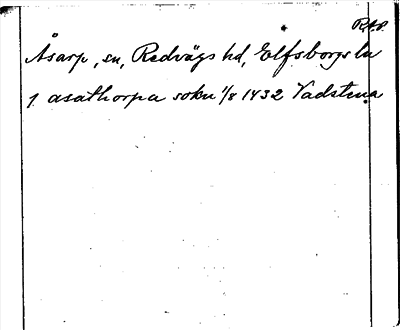 R.A.P.
Åsarp, sn, Redvägs hd, Elfsborgs ln
1 asathorpa sokn 1/8 1432 Vadstena